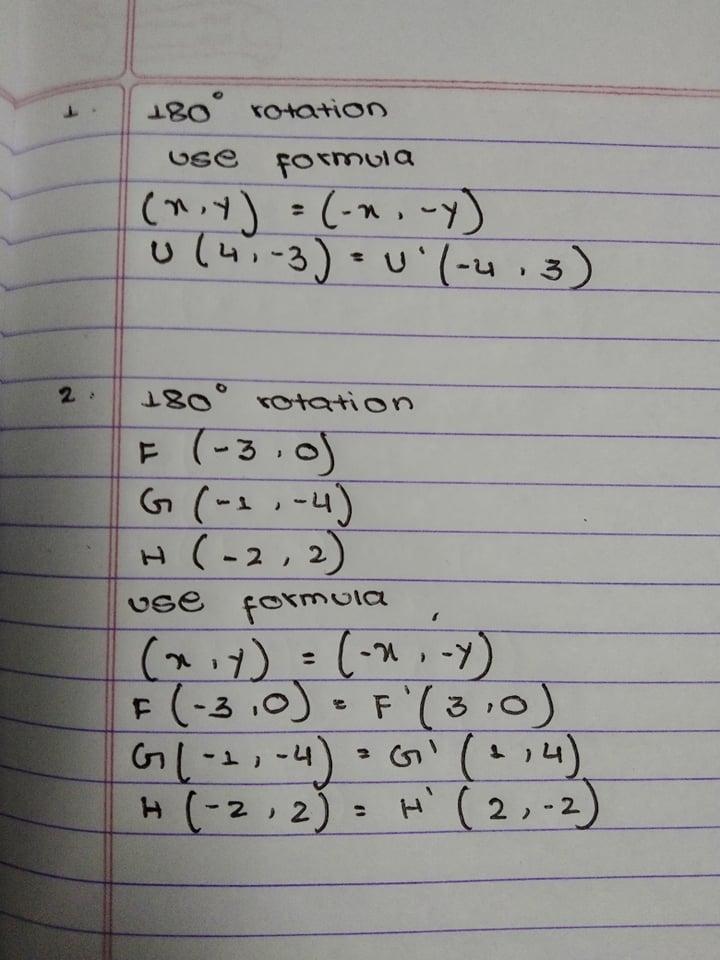 1. 180° rotation
use formula
(x,y) = (-x, -y)
U (4,-3) = U'(-4, 3)
2. 180° rotation
F (-3, 0)
G (-1, -4)
H (-2, 2)
use formula
(x,y) = (-x, -y)
F (-3,0) = F'(3,0)
G (-1,-4) = G' (1,4)
H (-2,2) = H' (2,-2)